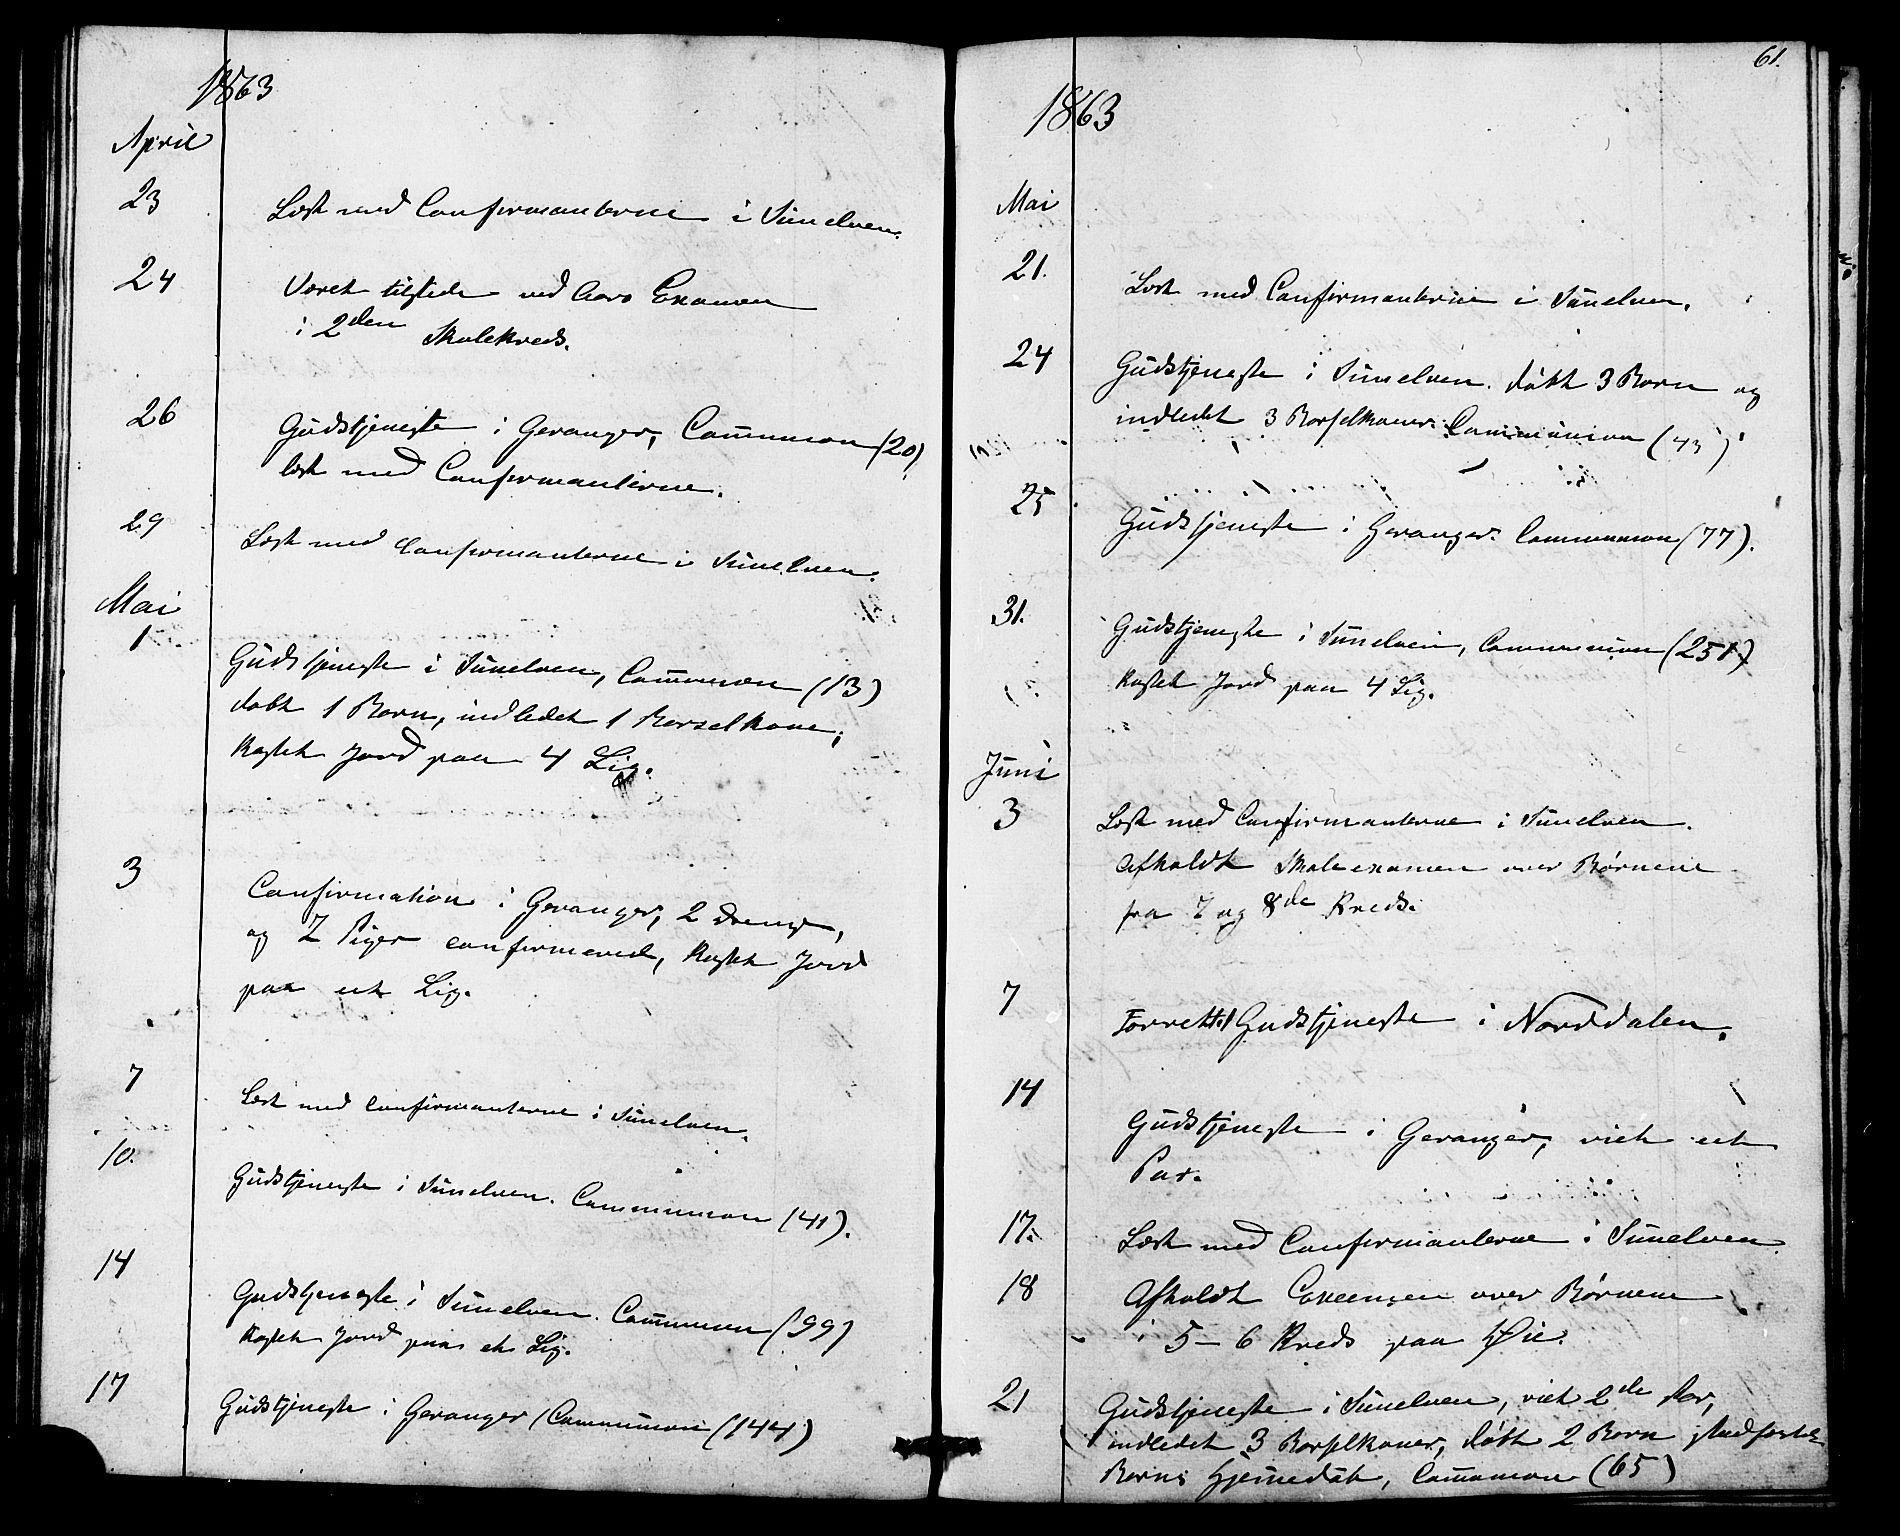 1863
April
23 Læst med Confirmanterne i Sunelven.
24 Været tilstede ved Aars Examen
i 2den Skolekreds.
26 Gudstjeneste i Geranger, Communion (20)
læst med Confirmanterne.
29 Læst med Confirmanterne i Sunelven.
Mai
1 Gudstjeneste i Sunelven, Communion (13)
døbt 1 Barn, indledet 1 Barselkone,
Kastet Jord paa 4 Lig.
3 Confirmation i Geranger, 2 Drenge,
og 2 Piger confirmered, Kastet Jord
paa et Lig.
7 Læst med Confirmanterne i Sunelven.
10. Gudstjeneste i Sunelven. Communion (41).
14 Gudstjeneste i Sunelven. Communion (99)
Kastet Jord paa et Lig.
17 Gudstjeneste i Geranger, Communion (144)
61.
1863
Mai
21. Læst med Confirmanterne i Sunelven.
24 Gudstjeneste i Sunelven. døbt 3 Børn og
indledet 3 Barselkoner. Communion (43)
25 Gudstjeneste i Geranger. Communion (77).
31. Gudstjeneste i Sunelven, Communion (251)
Kastet Jord paa 4 Lig.
Juni
3 Læst med Confirmanterne i Sunelven.
Afholdt Skoleexamen over Børnene
fra 7 og 8de Kreds.
7 Forrettet Gudstjeneste i Norddalen.
14 Gudstjeneste i Geranger, viet et
Par.
17. Læst med Confirmanterne i Sunelven.
18 Afholdt Examen over Børnene
i 5-6 Kreds paa Øie.
21 Gudstjeneste i Sunelven, viet 2de Par,
indledet 3 Barselkoner, døbt 2 Børn, stadfæstet
Barns Hjemmedåb, Communion (65)